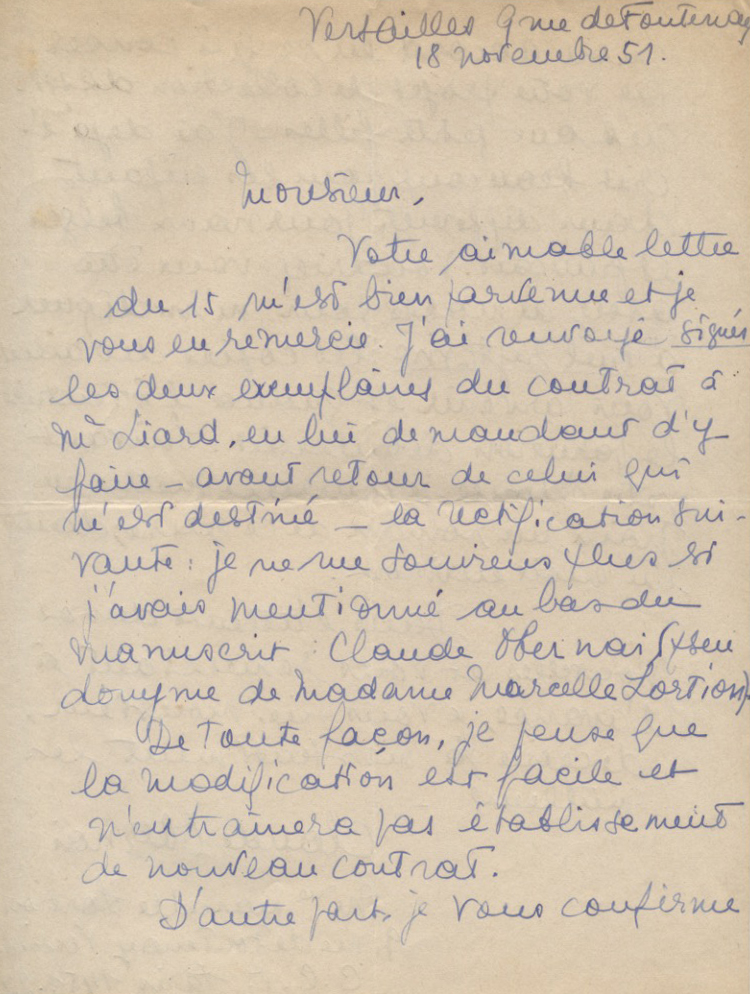 Versailles 9 rue de Fontenay
18 novembre 51.
Monsieur,
Votre aimable lettre
du 15 m'est bien parvenue et je
vous en remercie. J'ai renvoyé signés
les deux exemplaires du contrat à
Mr Liard, en lui demandant d'y
faire – avant retour de celui qui
m'est destiné – la rectification sui-
vante : je ne me souviens plus si
j'avais mentionné au bas du
manuscrit : Claude Obernai (pseu
donyme de Madame Marcelle Lortion).
De toute façon, je pense que
la modification est facile et
n'entraînera pas établissement
de nouveau contrat.
D'autre part, je vous confirme